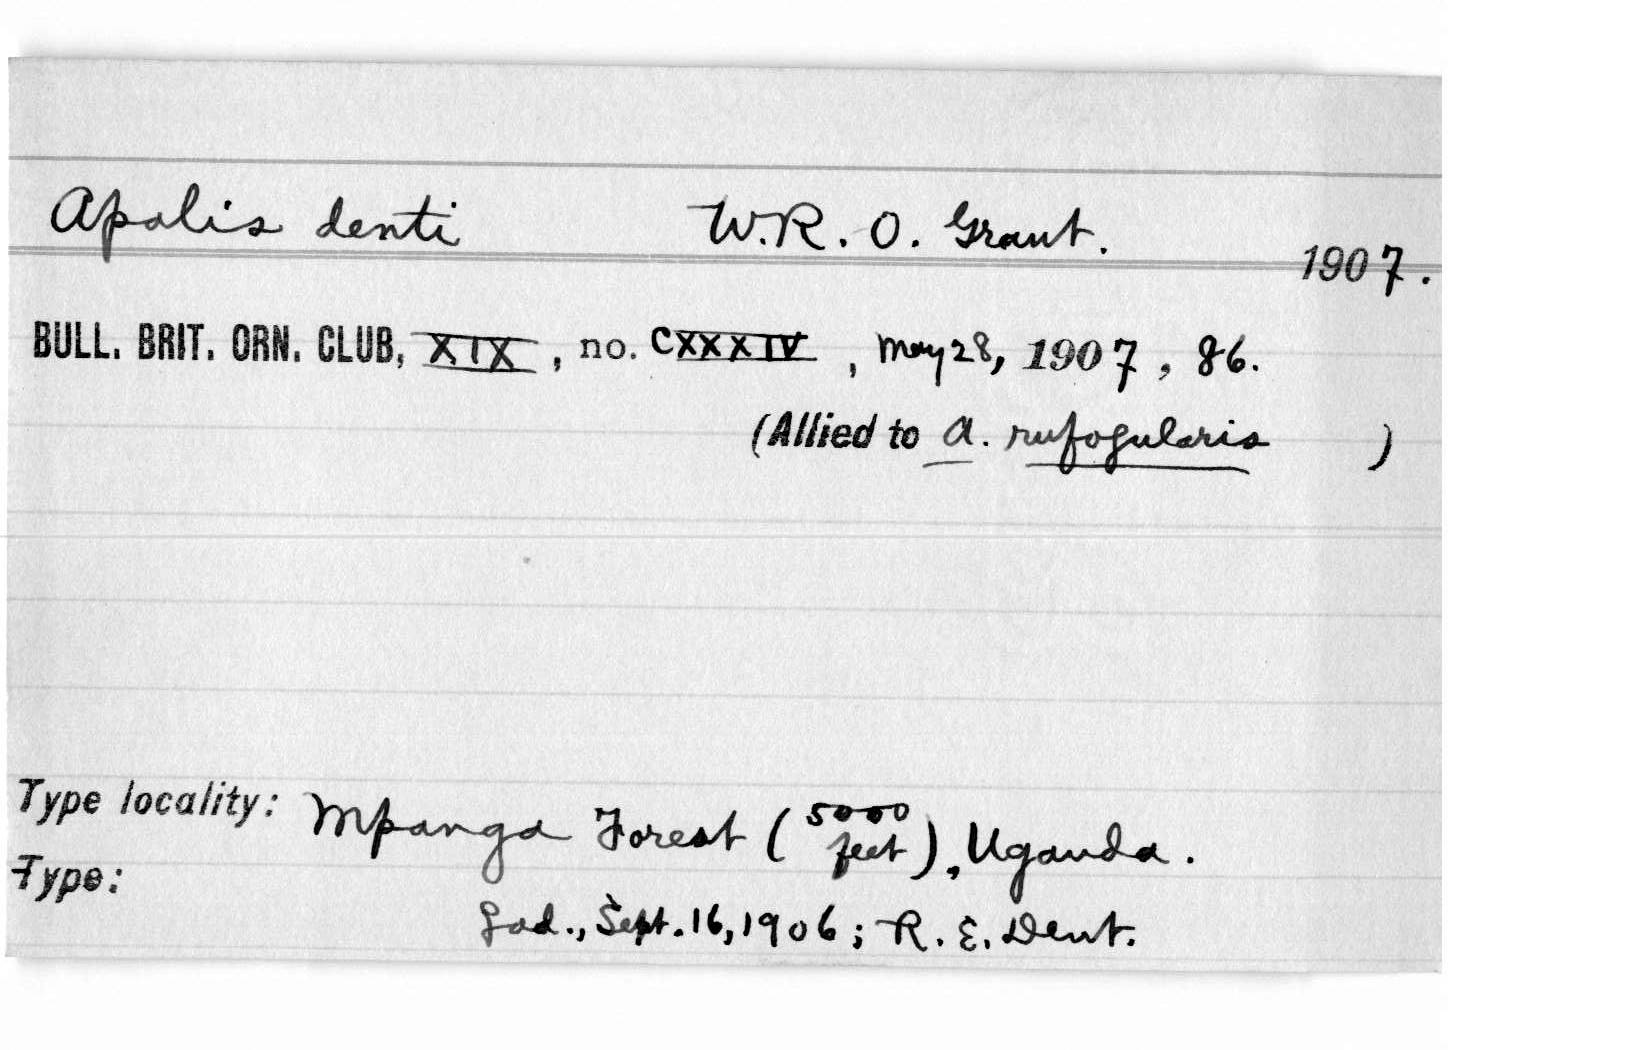 Apalis denti W.R.O. Grant. 1907.
BULL. BRIT. ORN. CLUB, XIX, no. CXXXIV, May 28, 1907, 86.
(Allied to A. rufogularis )
Type locality: Mpanga Forest (5000 feet), Uganda.
Type:
♂ad., Sept. 16, 1906; R. E. Dent.